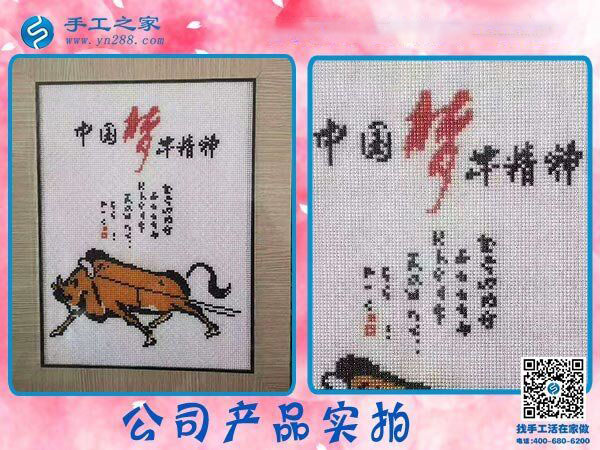 手工之家
www.yn288.com
中国梦牛精神
中国梦牛精神
公司产品实拍
找手工活在家做
电话:400-680-6200